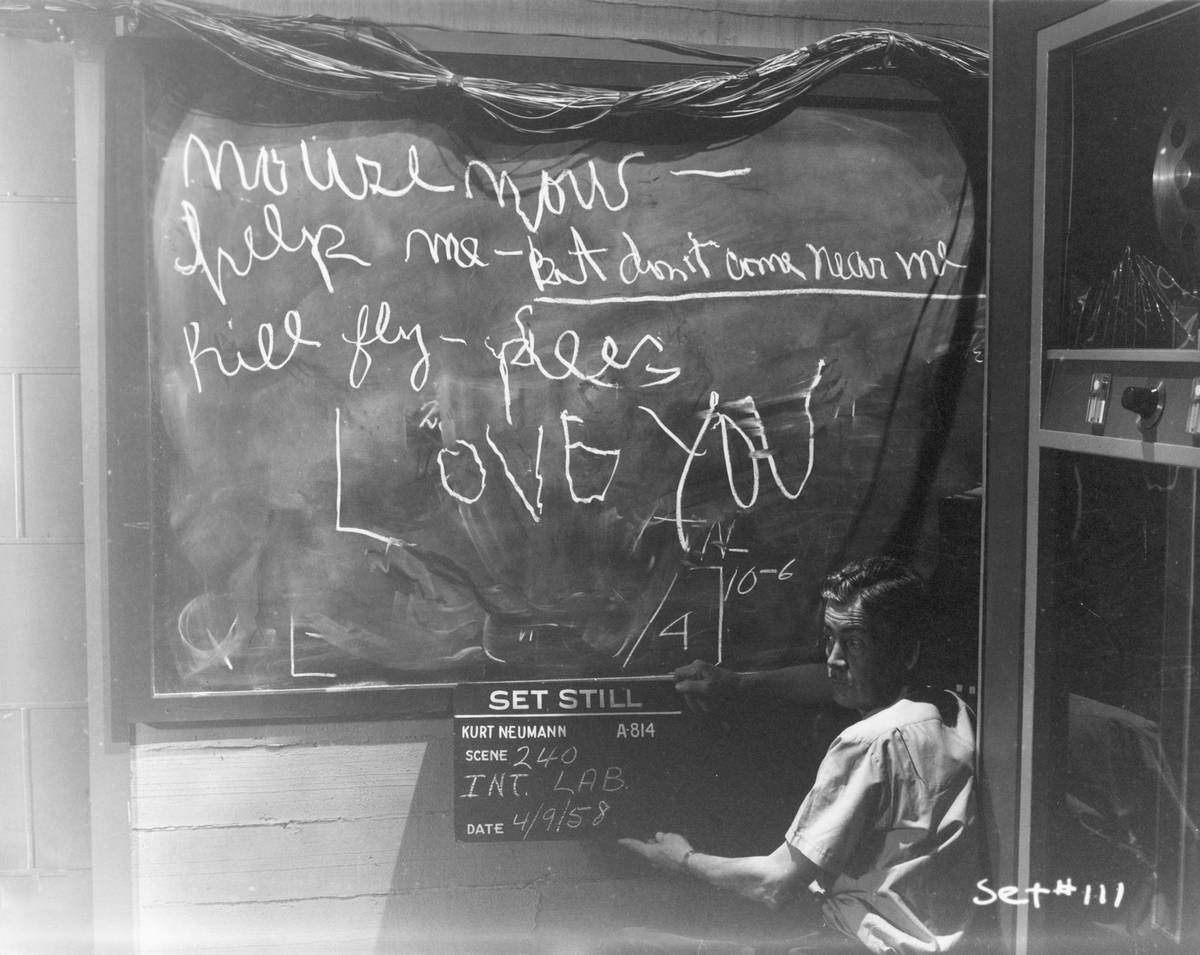 no use now —
help me – But don't come near me
kill fly – plees
LOVE YOU
N
10-6
4
SET STILL
KURT NEUMANN A-814
SCENE 240
INT. LAB.
DATE 4/9/58
Set #111